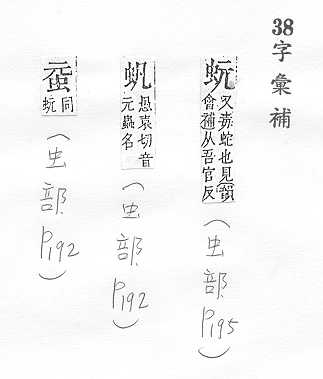 38字彙補
蚖
又毒蛇也見韻
會補从吾官反
(虫部P195)
愚袁切音
元蟲名
(虫部P192)
同
蚖
(虫部P192)